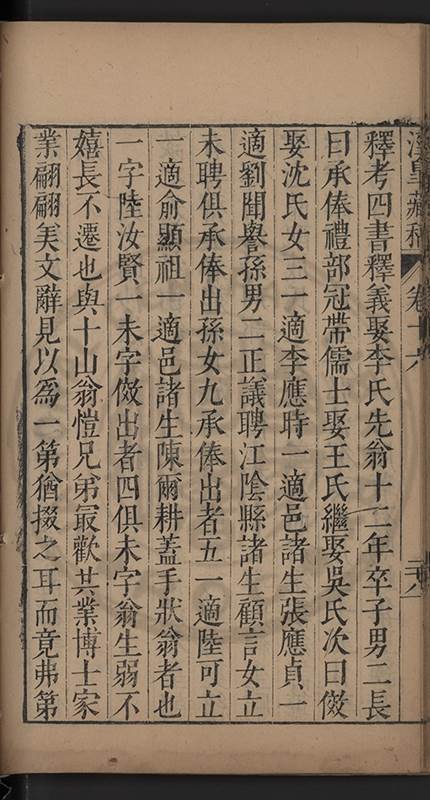 藏稿 卷十六
釋考四書釋義娶李氏先翁十二年卒子男二長
曰承俸禮部冠帶儒士娶王氏繼娶吳氏次曰傚
娶沈氏女三一適李應時一適邑諸生張應貞一
適劉聞譽孫男二正議聘江陰縣諸生顧言女立
未聘俱承俸出孫女九承俸出者五一適陸可立
一適俞顯祖一適邑諸生陳爾耕蓋手狀翁者也
一字陸汝賢一未字傚出者四俱未字翁生弱不
嬉長不遷也與十山翁愷兄弟最歡其業博士家
業翩翩美文辭見以爲一第猶掇之耳而竟弗第